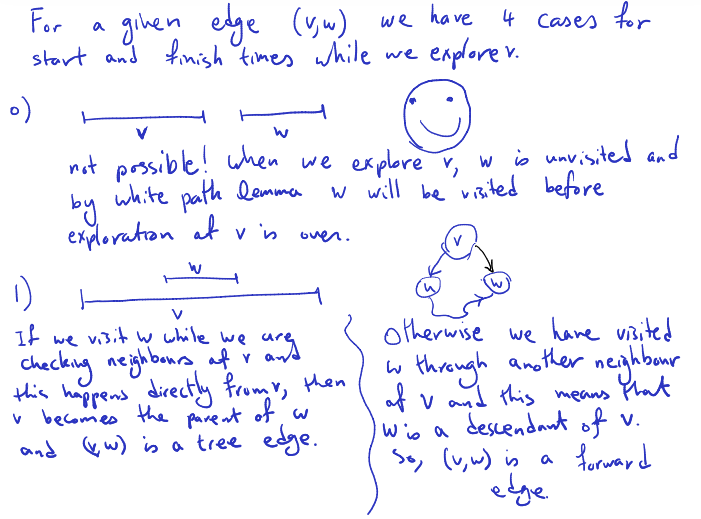 For a given edge (v,w) we have 4 cases for
start and finish times while we explore v.
0)
v w
not possible! When we explore v, w is unvisited and
by white path lemma w will be visited before
exploration of v is over.
1)
w
v
v
u w
If we visit w while we are
checking neighbours of v and
this happens directly from v, then
v becomes the parent of w
and (v,w) is a tree edge.
Otherwise we have visited
w through another neighbour
of v and this means that
w is a descendant of v.
So, (v,w) is a forward
edge.